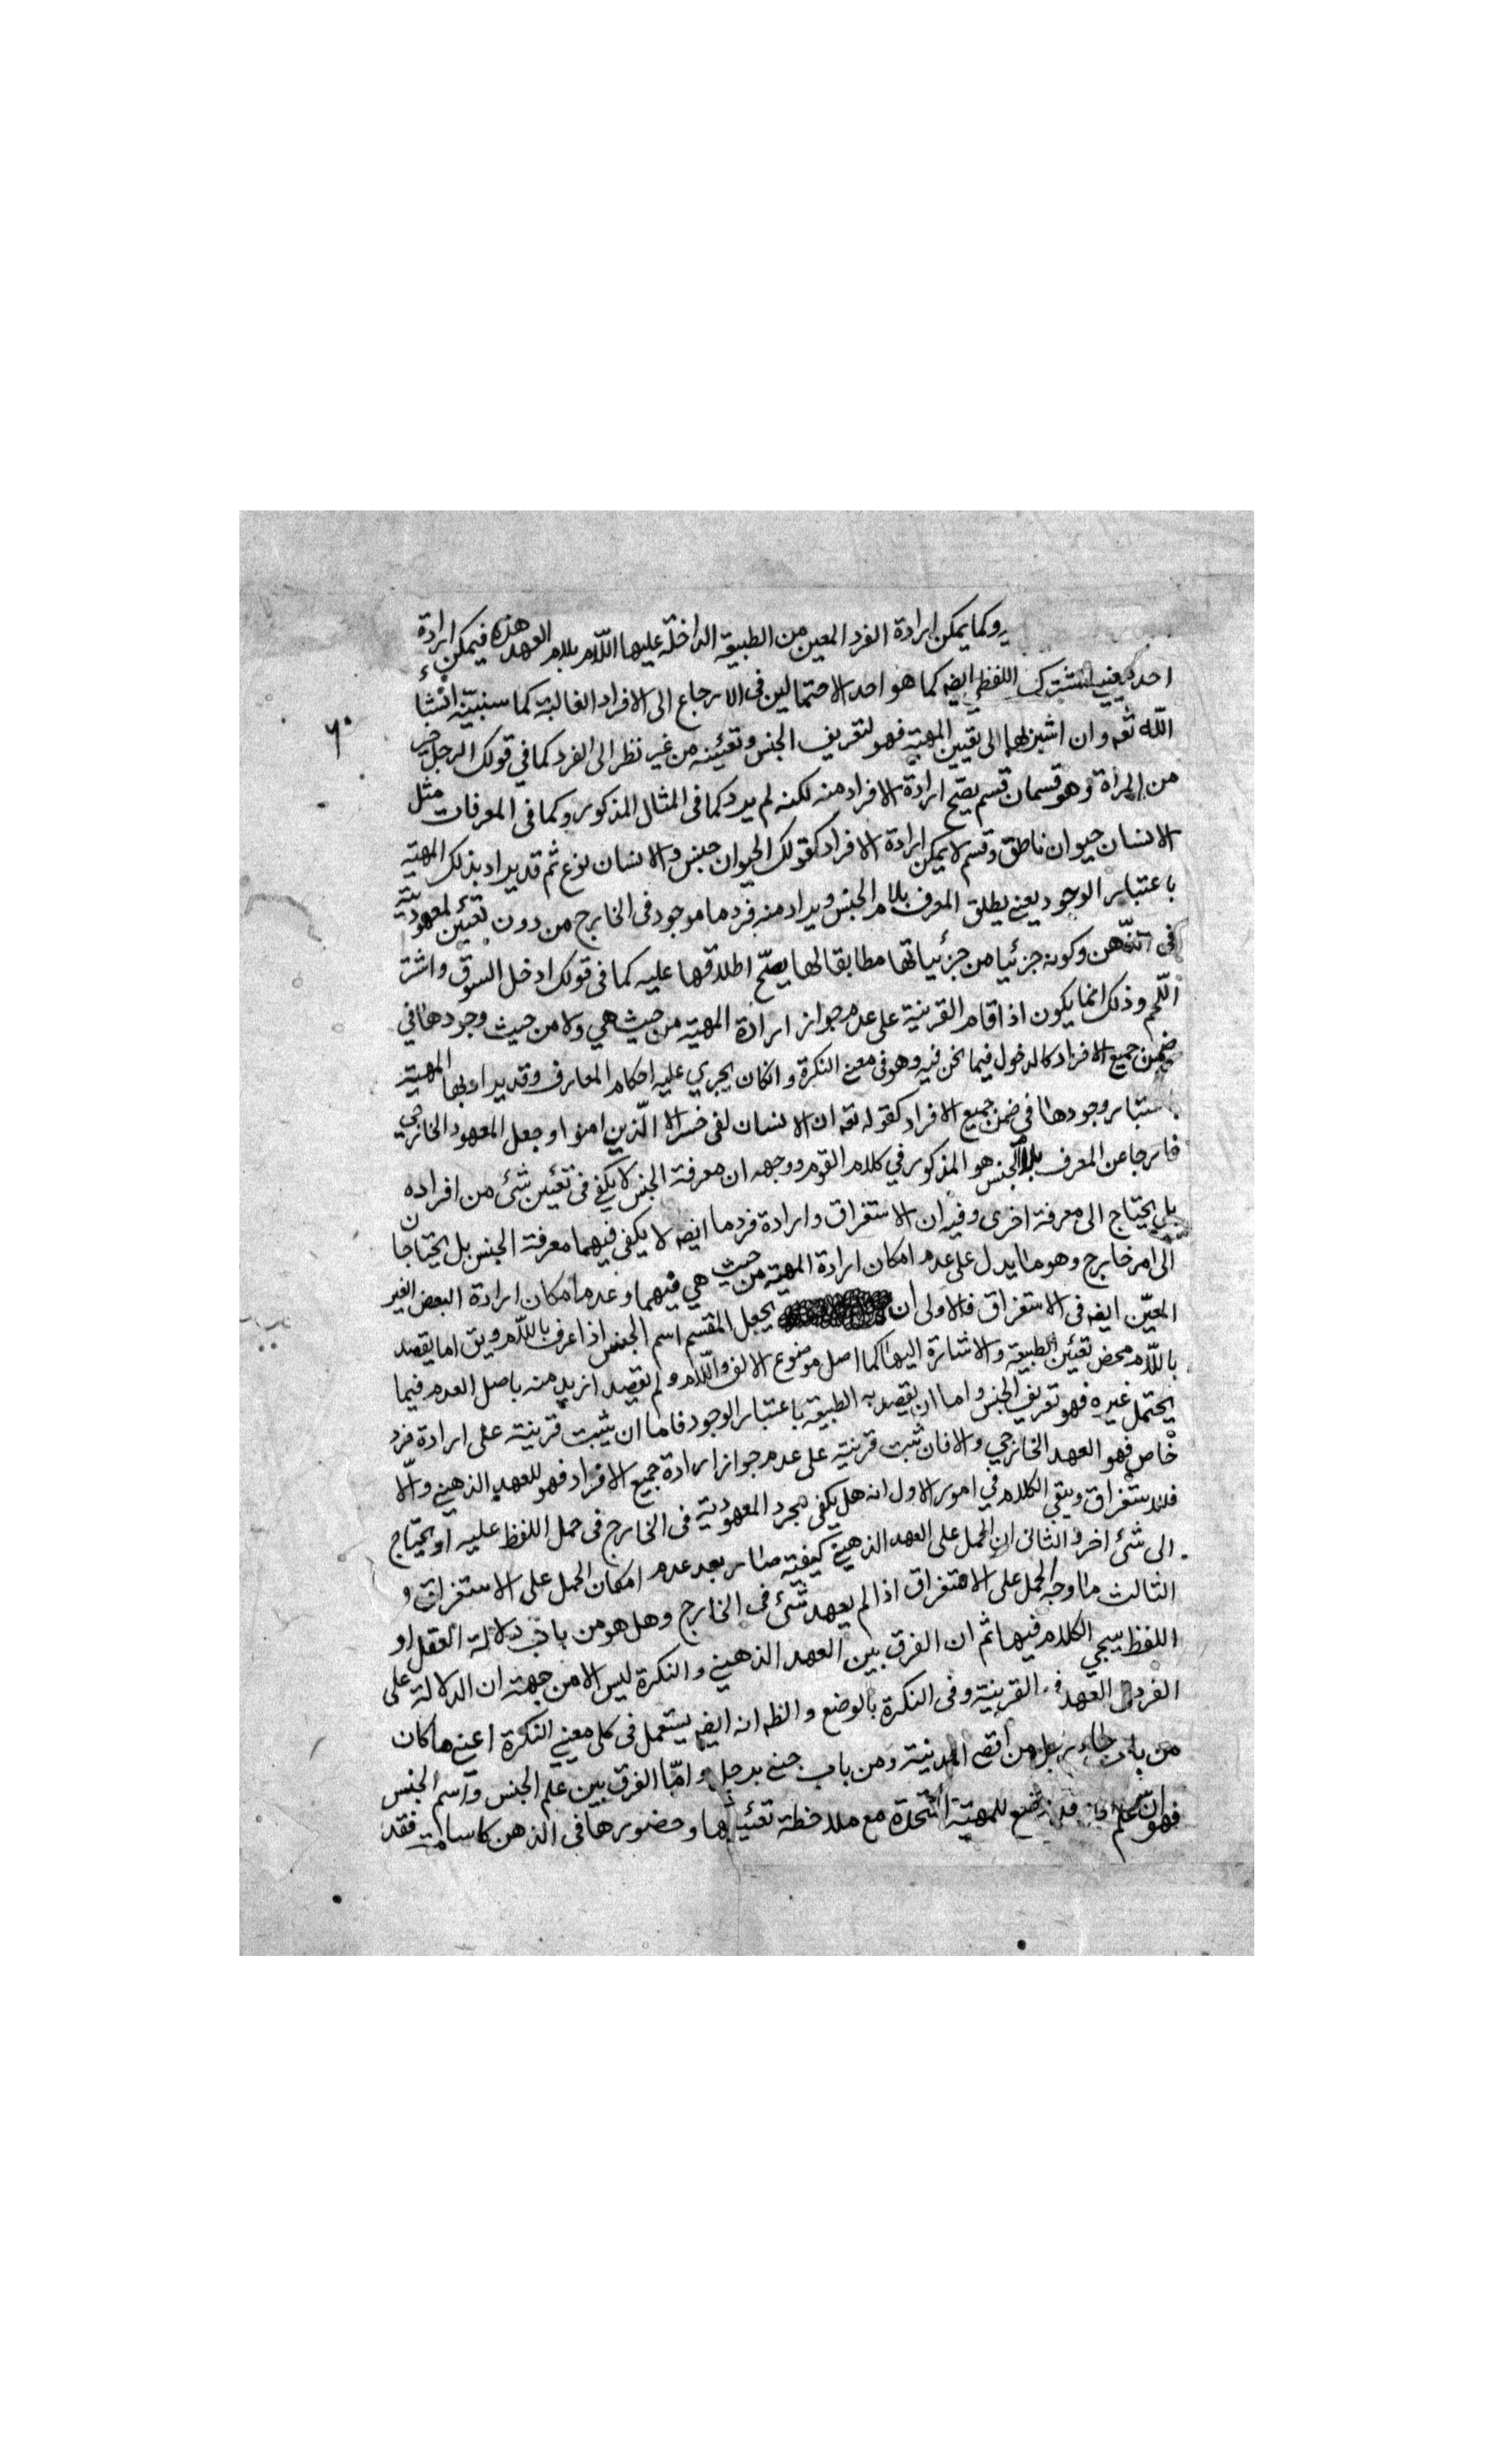 وكما يمكن ارادة الفرد المعين من الطبيعة الداخلة عليها اللّام بلام العهد هذه فيمكن ارادة
احد معنيي المشترك اللفظي ايضه كما هو احد الاحتمالين في الارجاع الى الافراد الغالبة كما سنبينه انشاء
اللّه تعه وان اشير بها الى تعيين المهيّة فهو لتعريف الجنس وتعيّنه من غير نظر الى الفرد كما في قولك الرجل خير
من المرأة وهو قسمان قسم يصّح ارادة الافراد منه لكنه لم يرد كما في المثال المذكور وكما في المعرفات مثل
الانسان حيوان ناطق وقسم لا يمكن ارادة الافراد كقولك الحيوان جنس والانسان نوع ثم قد يراد بذلك المهيّة
باعتبار الوجود يعني يطلق المعرف بلام الجنس ويراد منه فرد ما موجود في الخارج من دون تعيّن لمعهوديّته
في الذّهن وكونه جزئيا من جزئياتها مطابقا لها يصّح اطلاقها عليه كما في قولك ادخل السوق واشتر
اللّحم وذلك انما يكون اذا قام القرينة على عدم جواز ارادة المهيّة من حيث هي ولا من حيث وجودها في
ضمن جميع الافراد كالدخول فيما نحن فيه وهو في معنى النكرة وانكان يجري عليه احكام المعارف وقد يراد بها المهيّة
باعتبار وجودها في ضمن جميع الافراد كقوله تعه ان الانسان لفي خسر الا الّذين امنوا وجعل المعهود الخارجي
خارجا عن المعرف بلام الجنس هو المذكور في كلام القوم ووجهه ان معرفة الجنس لا يكفي في تعيّن شئ من افراده
بل يحتاج الى معرفة اخرى وفيه ان الاستغراق وارادة فرد ما ايضه لا يكفي فيهما معرفة الجنس بل يحتاجان
الى امر خارج وهو ما يدل على عدم امكان ارادة المهيّة من حيث هي فيهما وعدم امكان ارادة البعض الغير
المعيّن ايضه في الاستغراق فالاولى ان يجعل المقسم اسم الجنس اذا عرف باللّام ويق اما يقصد
باللّام محض تعيّن الطبيعة والاشارة اليها كما اصل موضوع الالف واللّام ولم يقصد ازيد منه باصل العدم فيما
يحتمل غيره فهو تعريف الجنس واما ان يقصد به الطبيعة باعتبار الوجود فاما ان يثبت قرينة على ارادة فرد
خاص فهو العهد الخارجي والا فان ثبت قرينة على عدم جواز ارادة جميع الافراد فهو للعهد الذهني والّا
فللاستغراق ويبقى الكلام في امور الاول انه هل يكفي مجرد المعهوديّة في الخارج في حمل اللفظ عليه او يحتاج
الى شئ اخر والثاني ان الحمل على العهد الذهني كيف صار بعد عدم امكان الحمل على الاستغراق و
الثالث ما وجه الحمل على الاستغراق اذا لم يعهد شئ في الخارج وهل هو من باب دلالة العقل او
اللفظ سيجي الكلام فيها ثم ان الفرق بين العهد الذهني والنكرة ليس الا من جهة ان الدلالة على
الفرد في العهد القرينة وفي النكرة بالوضع والظه انه ايضه يستعمل في كلي معنيي النكرة اعني ما كان
من باب جاء رجل من اقصى المدينة ومن باب جئني برجل وامّا الفرق بين علم الجنس واسم الجنس
فهو ان علم وضع للمهيّة المتّحدة مع ملاحظة تعيّنها وحضورها في الذهن كاسامة فقد
٦٠